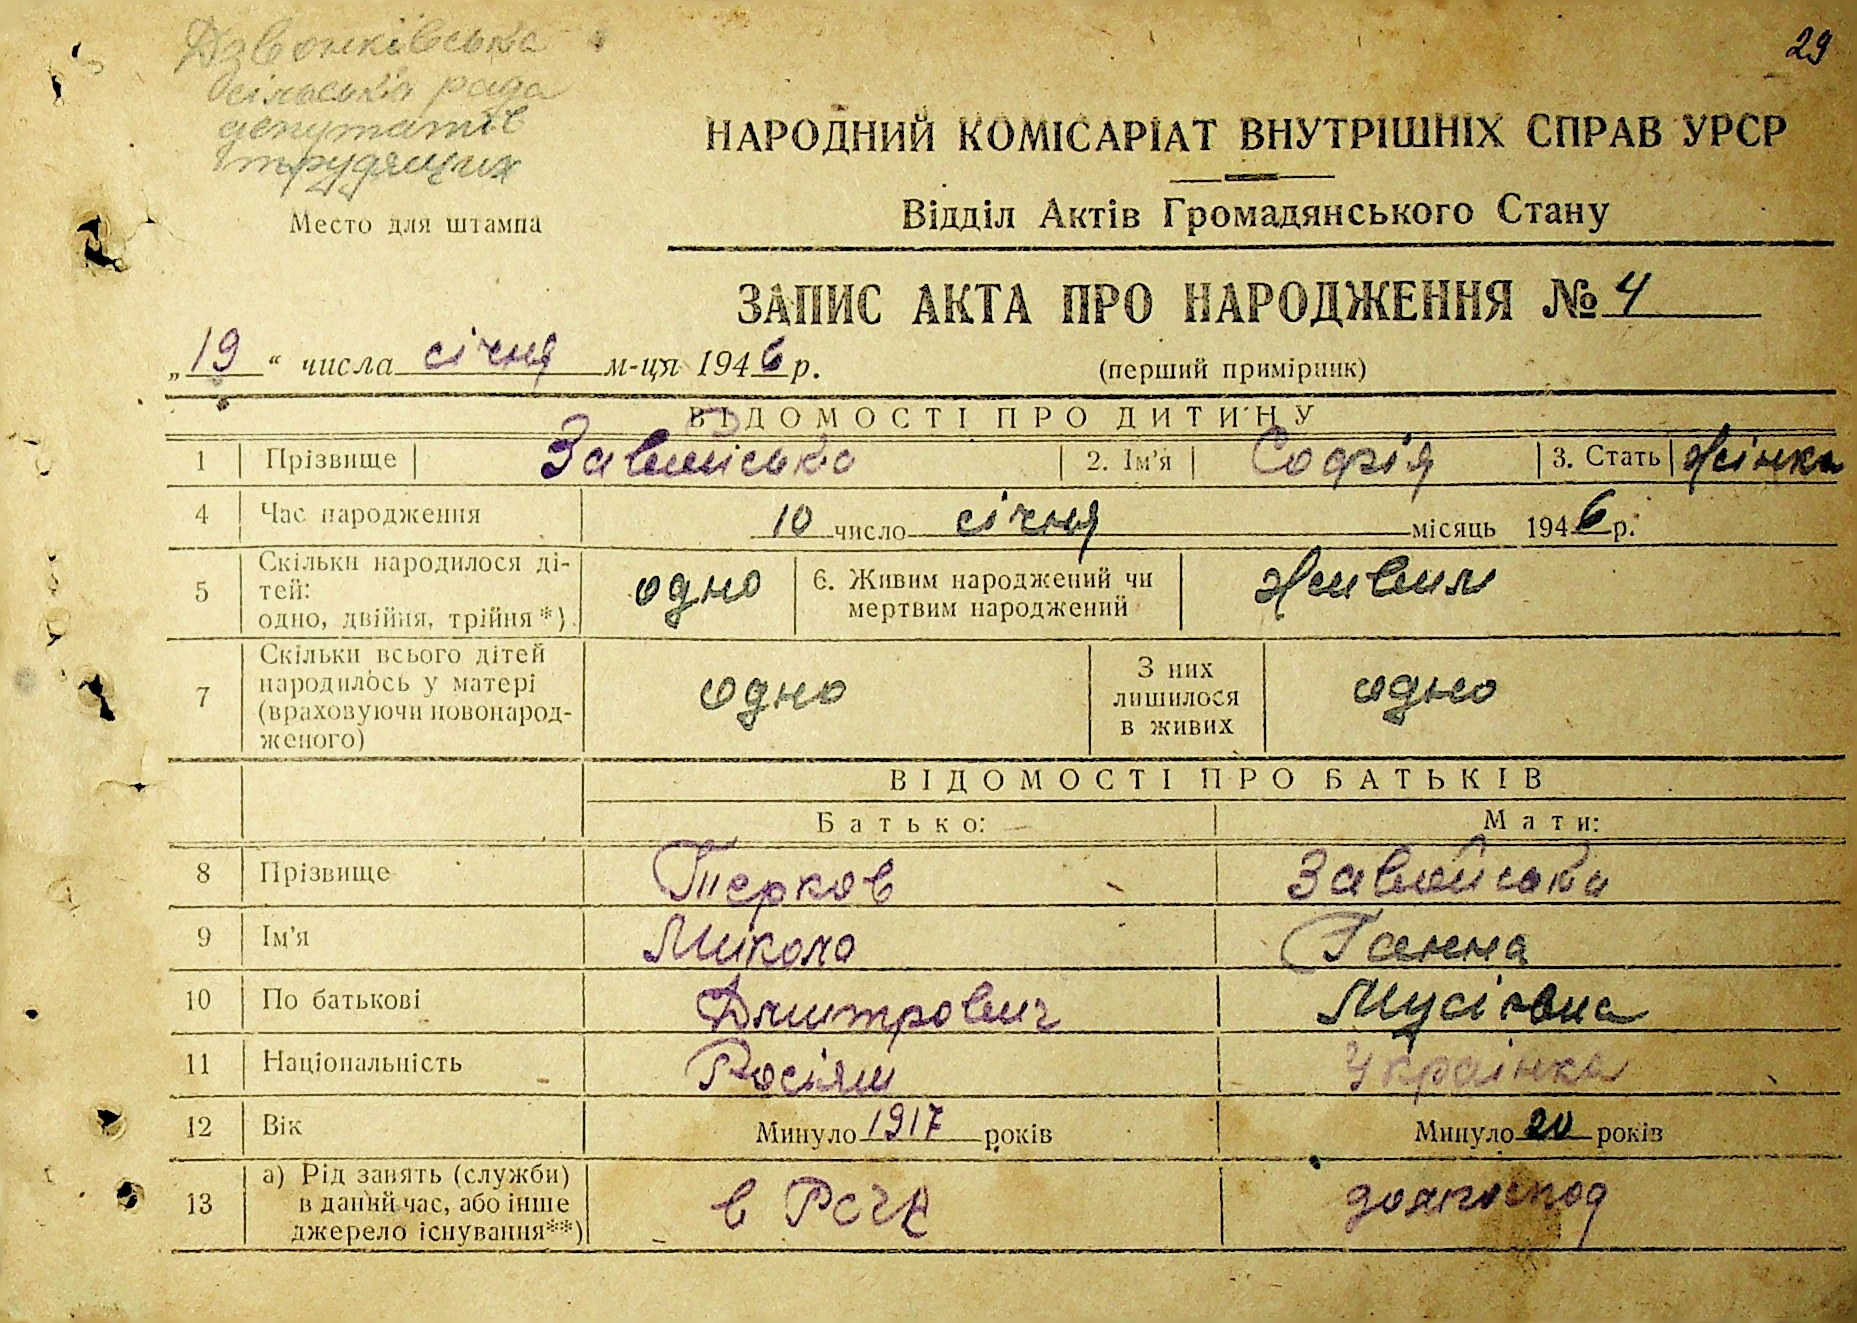 29
Дзвонківська
сільська рада
депутатів
трудящих
Место для штампа
НАРОДНИЙ КОМІСАРІАТ ВНУТРІШНІХ СПРАВ УРСР
Відділ Актів Громадянського Стану
ЗАПИС АКТА ПРО НАРОДЖЕННЯ № 4
„19“ числа січня м-ця 1946 р. (перший примірник)
ВІДОМОСТІ ПРО ДИТИНУ
1 Прізвище Завойська 2. Ім'я Софія 3. Стать жінка
4 Час народження 10 число січня місяць 1946 р.
5 Скільки народилося ді-
тей:
одно, двійня, трійня *) одно 6. Живим народжений чи
мертвим народжений Живим
7 Скільки всього дітей
народилось у матері
(враховуючи новонарод-
женого) одно З них
лишилося
в живих одно
ВІДОМОСТІ ПРО БАТЬКІВ
Батько: Мати:
8 Прізвище Терков Завойська
9 Ім'я Микола Ганна
10 По батькові Дмитрович Мусієвна
11 Національність Росіян Українка
12 Вік Минуло 1917 років Минуло 20 років
13 а) Рід занять (служби)
в даний час, або інше
джерело існування**) в РСЧА